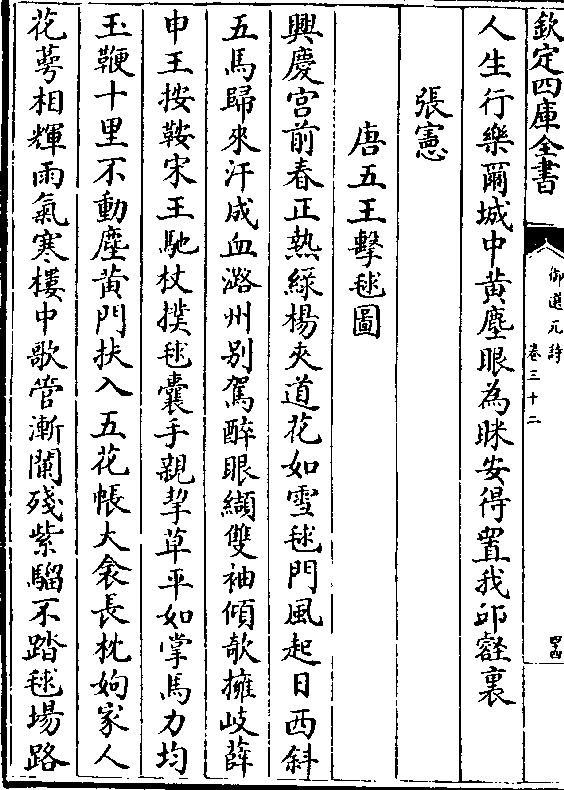 欽定四庫全書
御選元詩
卷三十二
四
人生行樂爾城中黄塵眼為眯安得置我邱壑裏
張憲
唐五王擊毬圖
興慶宫前春正熱緑楊夾道花如雪毬門風起日西斜
五馬歸來汗成血潞州别駕醉眼纈雙袖傾欹擁岐薛
申王按鞍宋王馳杖撲毬囊手親挈草平如掌馬力均
玉鞭十里不動塵黄門扶入五花帳大衾長枕姁家人
花萼相輝雨氣寒樓中歌管漸闌殘紫騮不踏毬場路